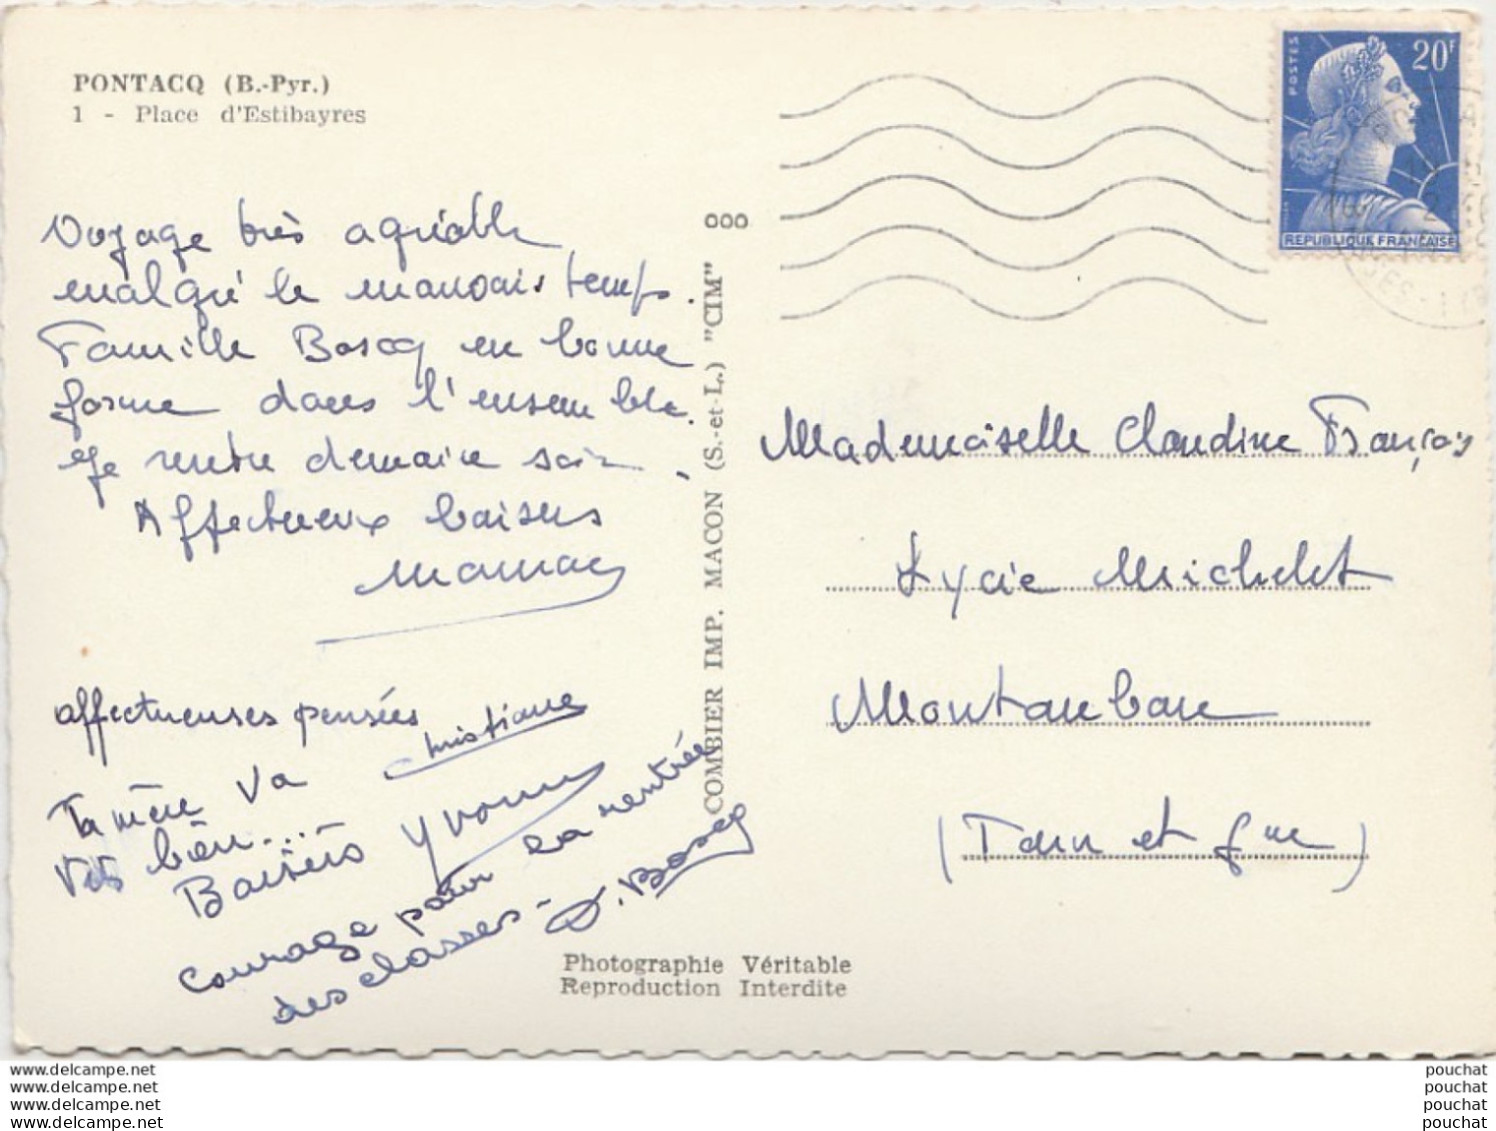 PONTACQ (B.-Pyr.)
1 - Place d'Estibayres
Voyage très agréable
malgré le mauvais temps.
Famille Boscq en bonne
forme dans l'ensemble.
Je rentre demain soir.
Affectueux baisers
Maman
affectueuses pensées
Christiane
Ta mère va
très bien...
Baisers Yvonne
Courage pour la rentrée
des classes - J. Boscq
COMBIER IMP. MACON (S.-et-L.) "CIM"
ooo
POSTES
20F
REPUBLIQUE FRANÇAISE
Mademoiselle Claudine François
Lycée Michelet
Montauban
(Tarn et Gne)
Photographie Véritable
Reproduction Interdite
www.delcampe.net
www.delcampe.net
www.delcampe.net
www.delcampe.net
pouchat
pouchat
pouchat
pouchat